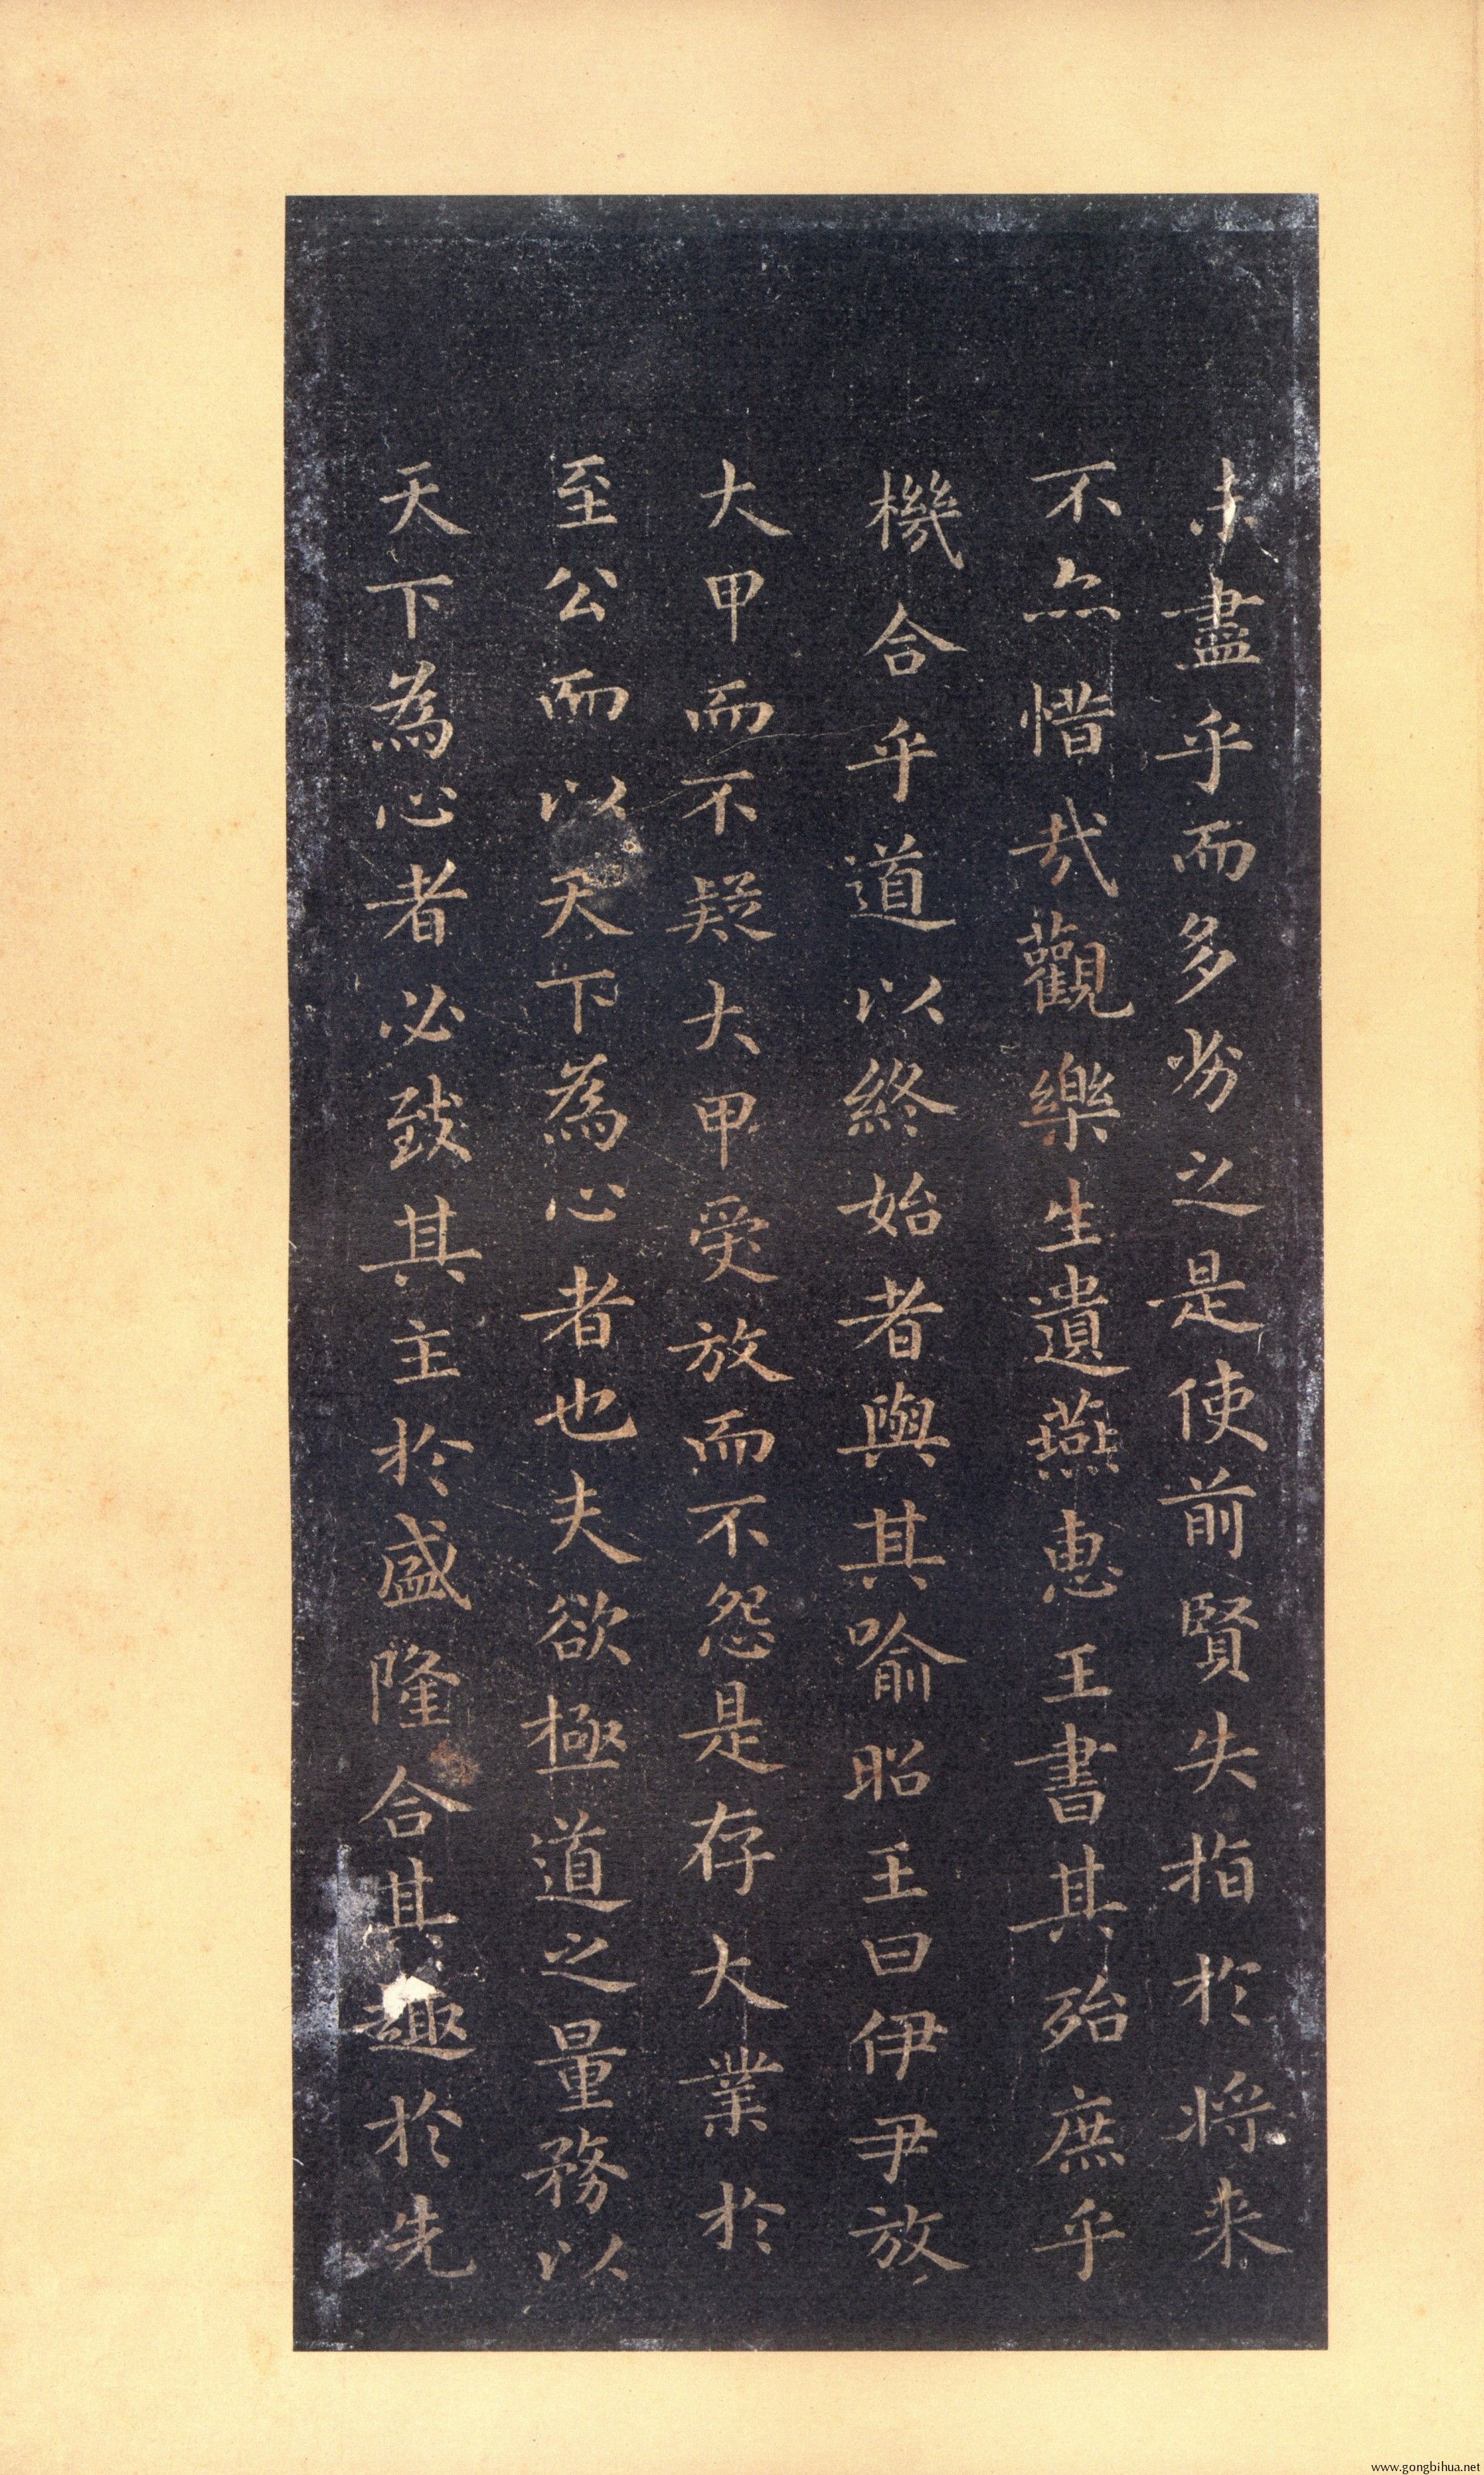 未盡乎而多劣之是使前賢失指於将来
不亦惜哉觀樂生遺燕惠王書其殆庶乎
機合乎道以終始者與其喻昭王曰伊尹放
大甲而不疑大甲受放而不怨是存大業於
至公而以天下為心者也夫欲極道之量務以
天下為心者必致其主於盛隆合其趣於先
www.gongbihua.net